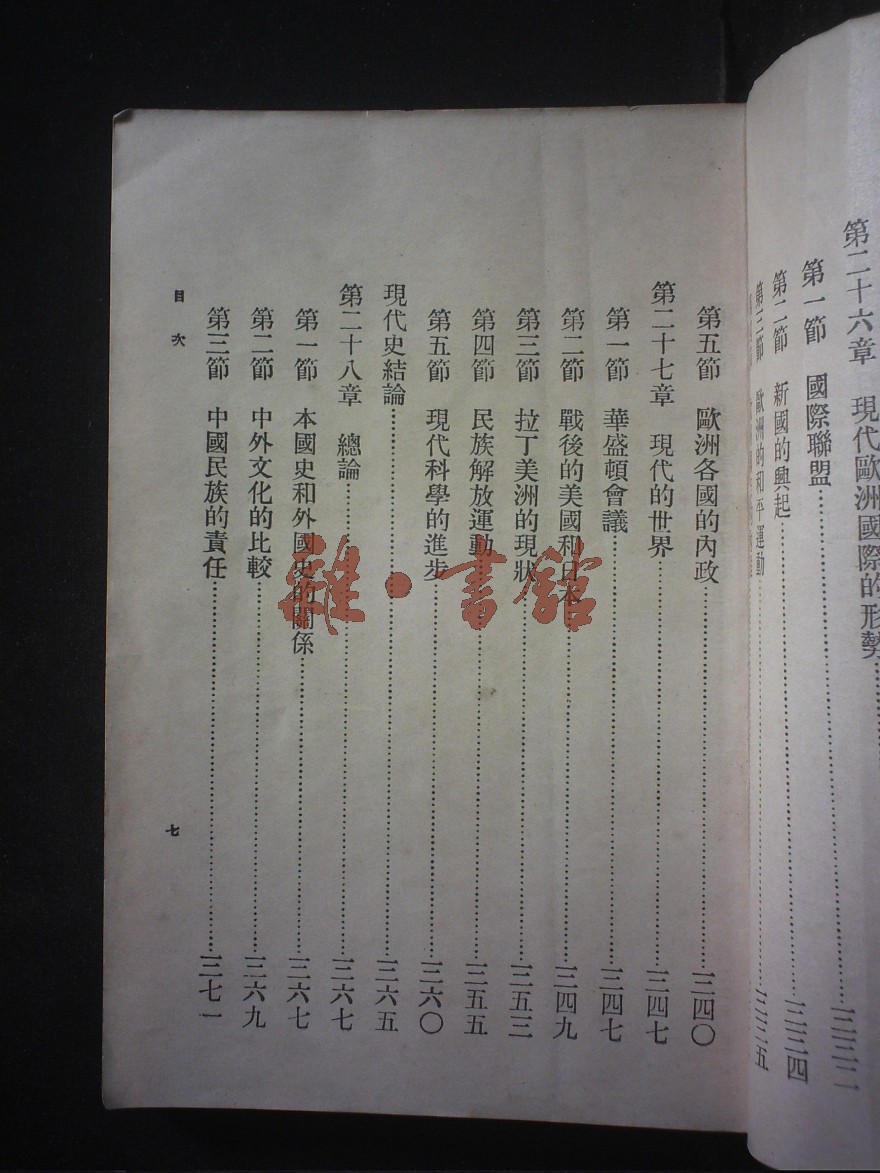 第二十六章　現代歐洲國際的形勢
第一節　國際聯盟…………三三二
第二節　新國的興起…………三三四
第三節　歐洲的和平運動…………三三五
第五節　歐洲各國的內政…………三四〇
第二十七章　現代的世界…………三四七
第一節　華盛頓會議…………三四七
第二節　戰後的美國和日本…………三四九
第三節　拉丁美洲的現狀…………三五三
第四節　民族解放運動…………三五五
第五節　現代科學的進步…………三六〇
現代史結論…………三六五
第二十八章　總論…………三六七
第一節　本國史和外國史的關係…………三六七
第二節　中外文化的比較…………三六九
第三節　中國民族的責任…………三七一
目次
七
雜·書館